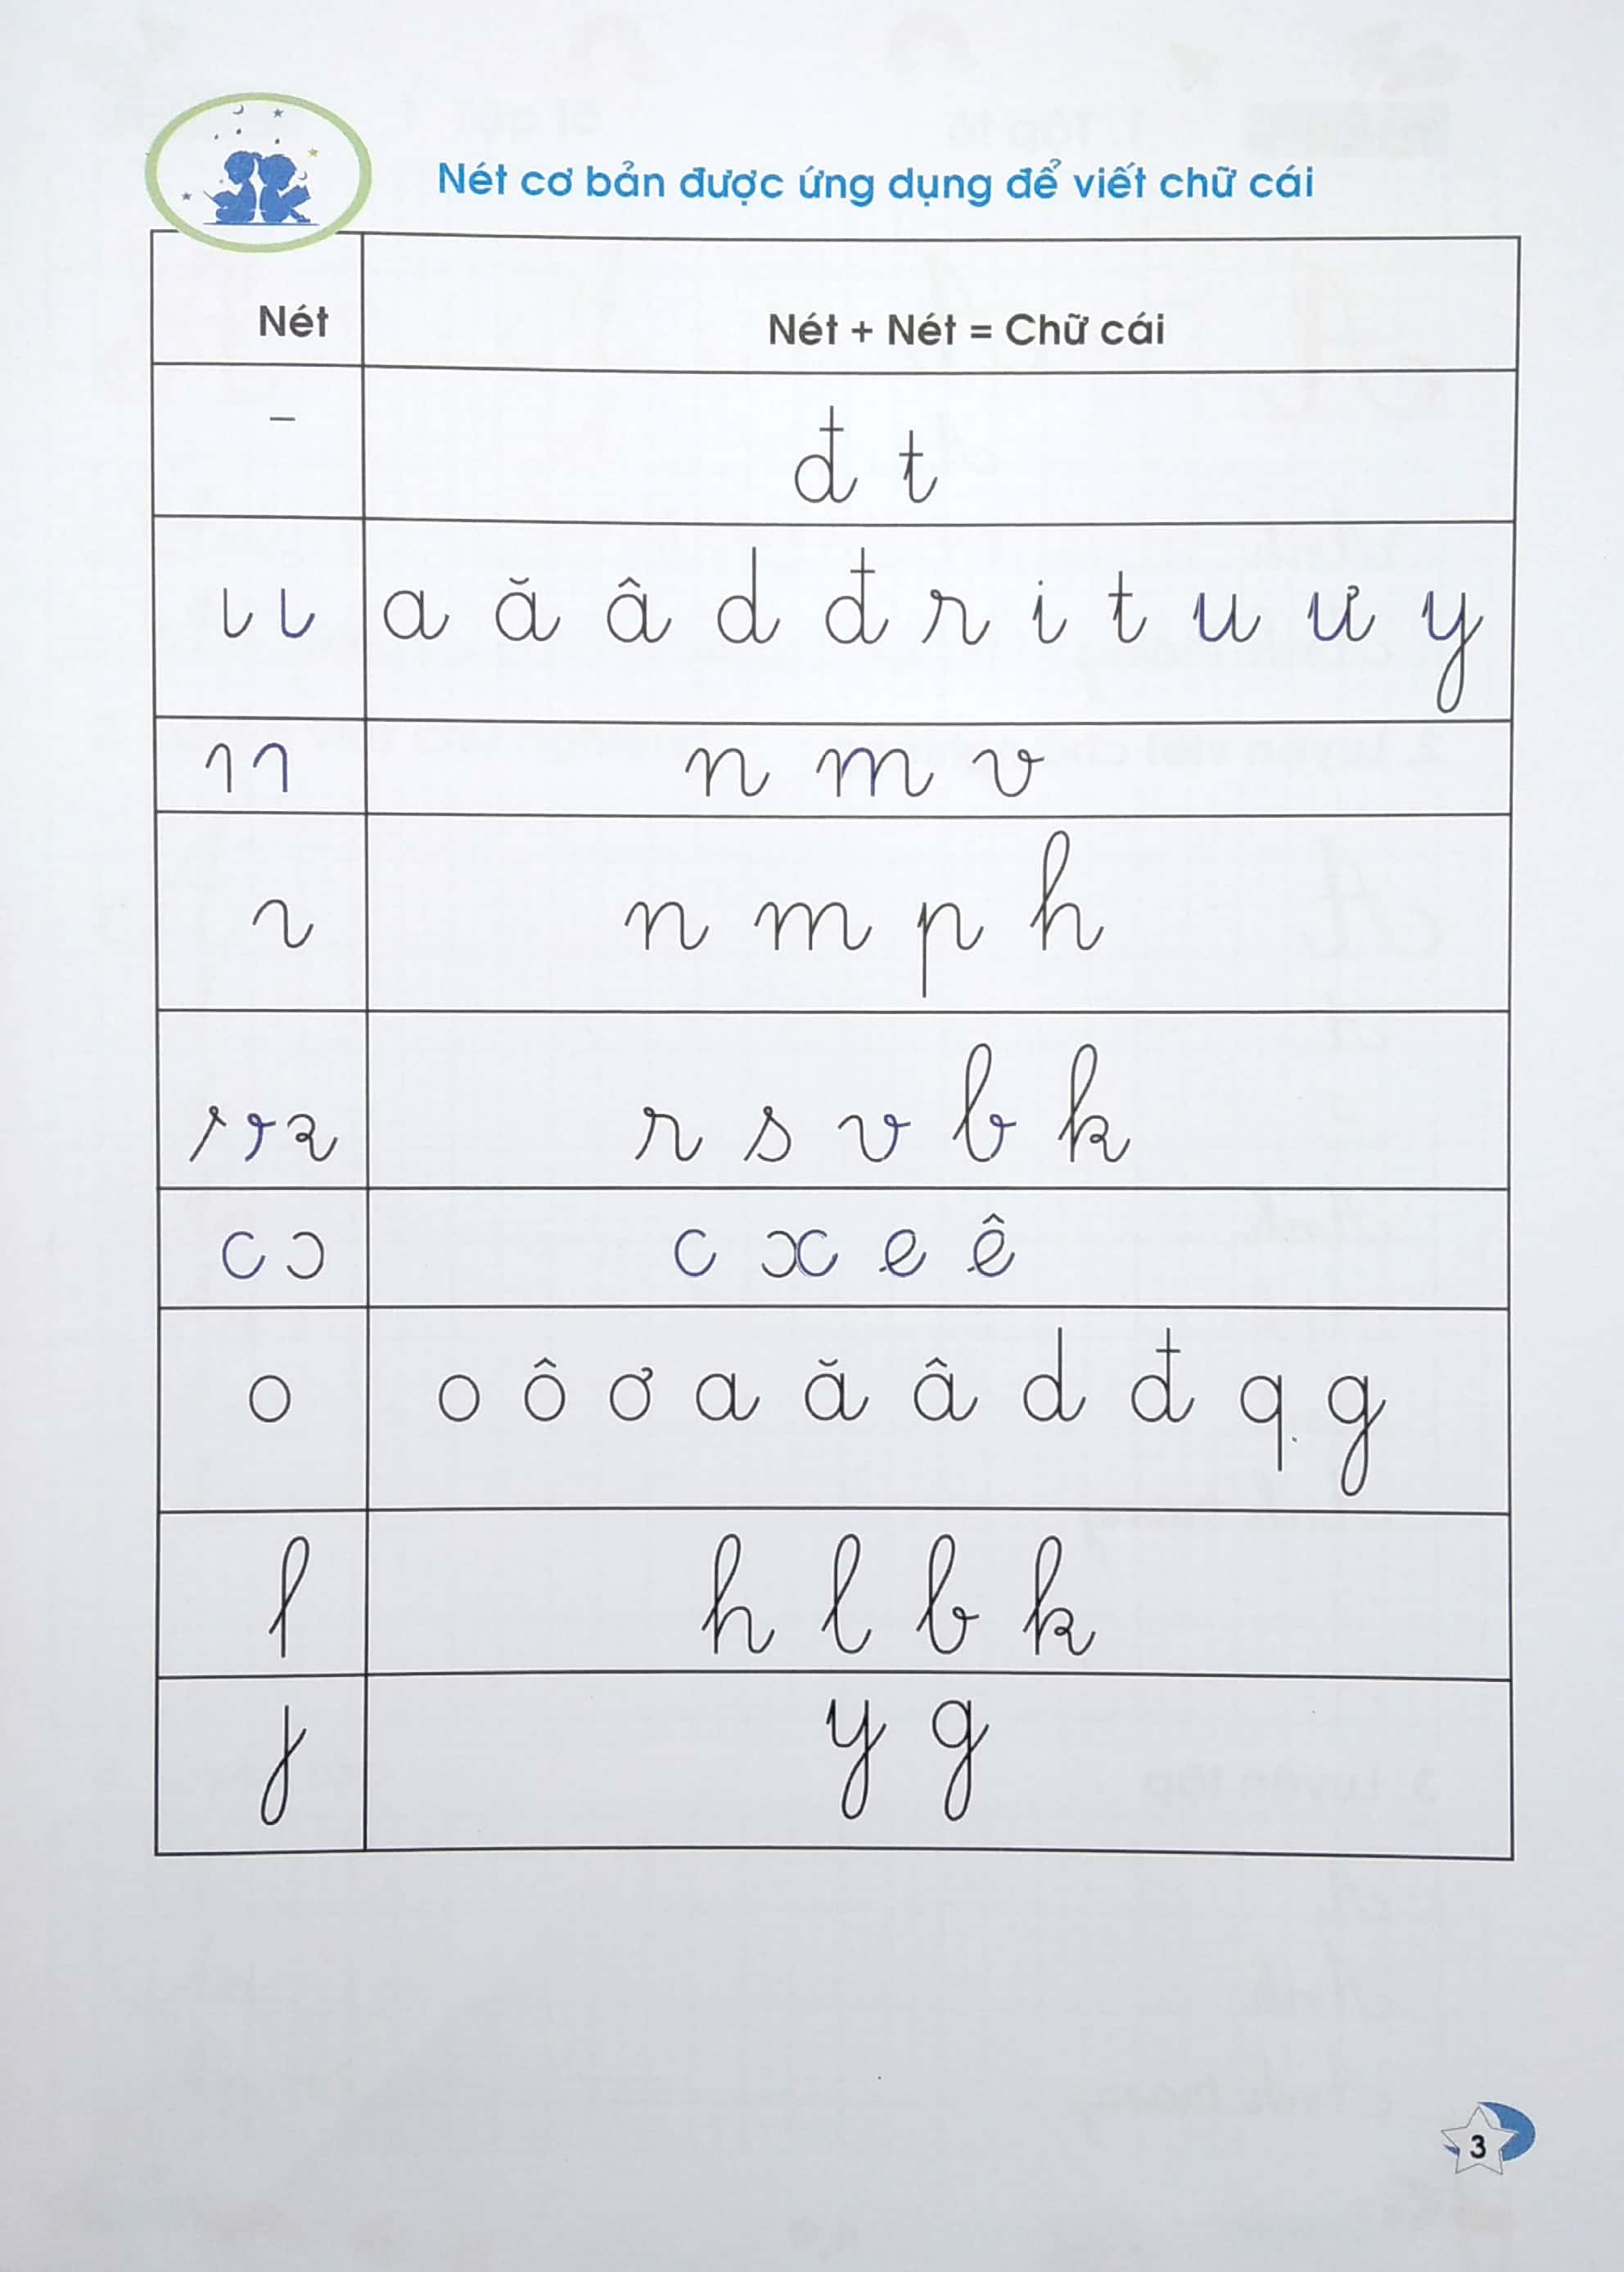 Nét cơ bản được ứng dụng để viết chữ cái
Nét Nét + Nét = Chữ cái
– đ t
ɩ ɩ a ă â d đ r i t u ư y
n m v
n m p h
r s v b k
c ɔ c x e ê
o o ô ơ a ă â d đ q g
h l b k
y g
3